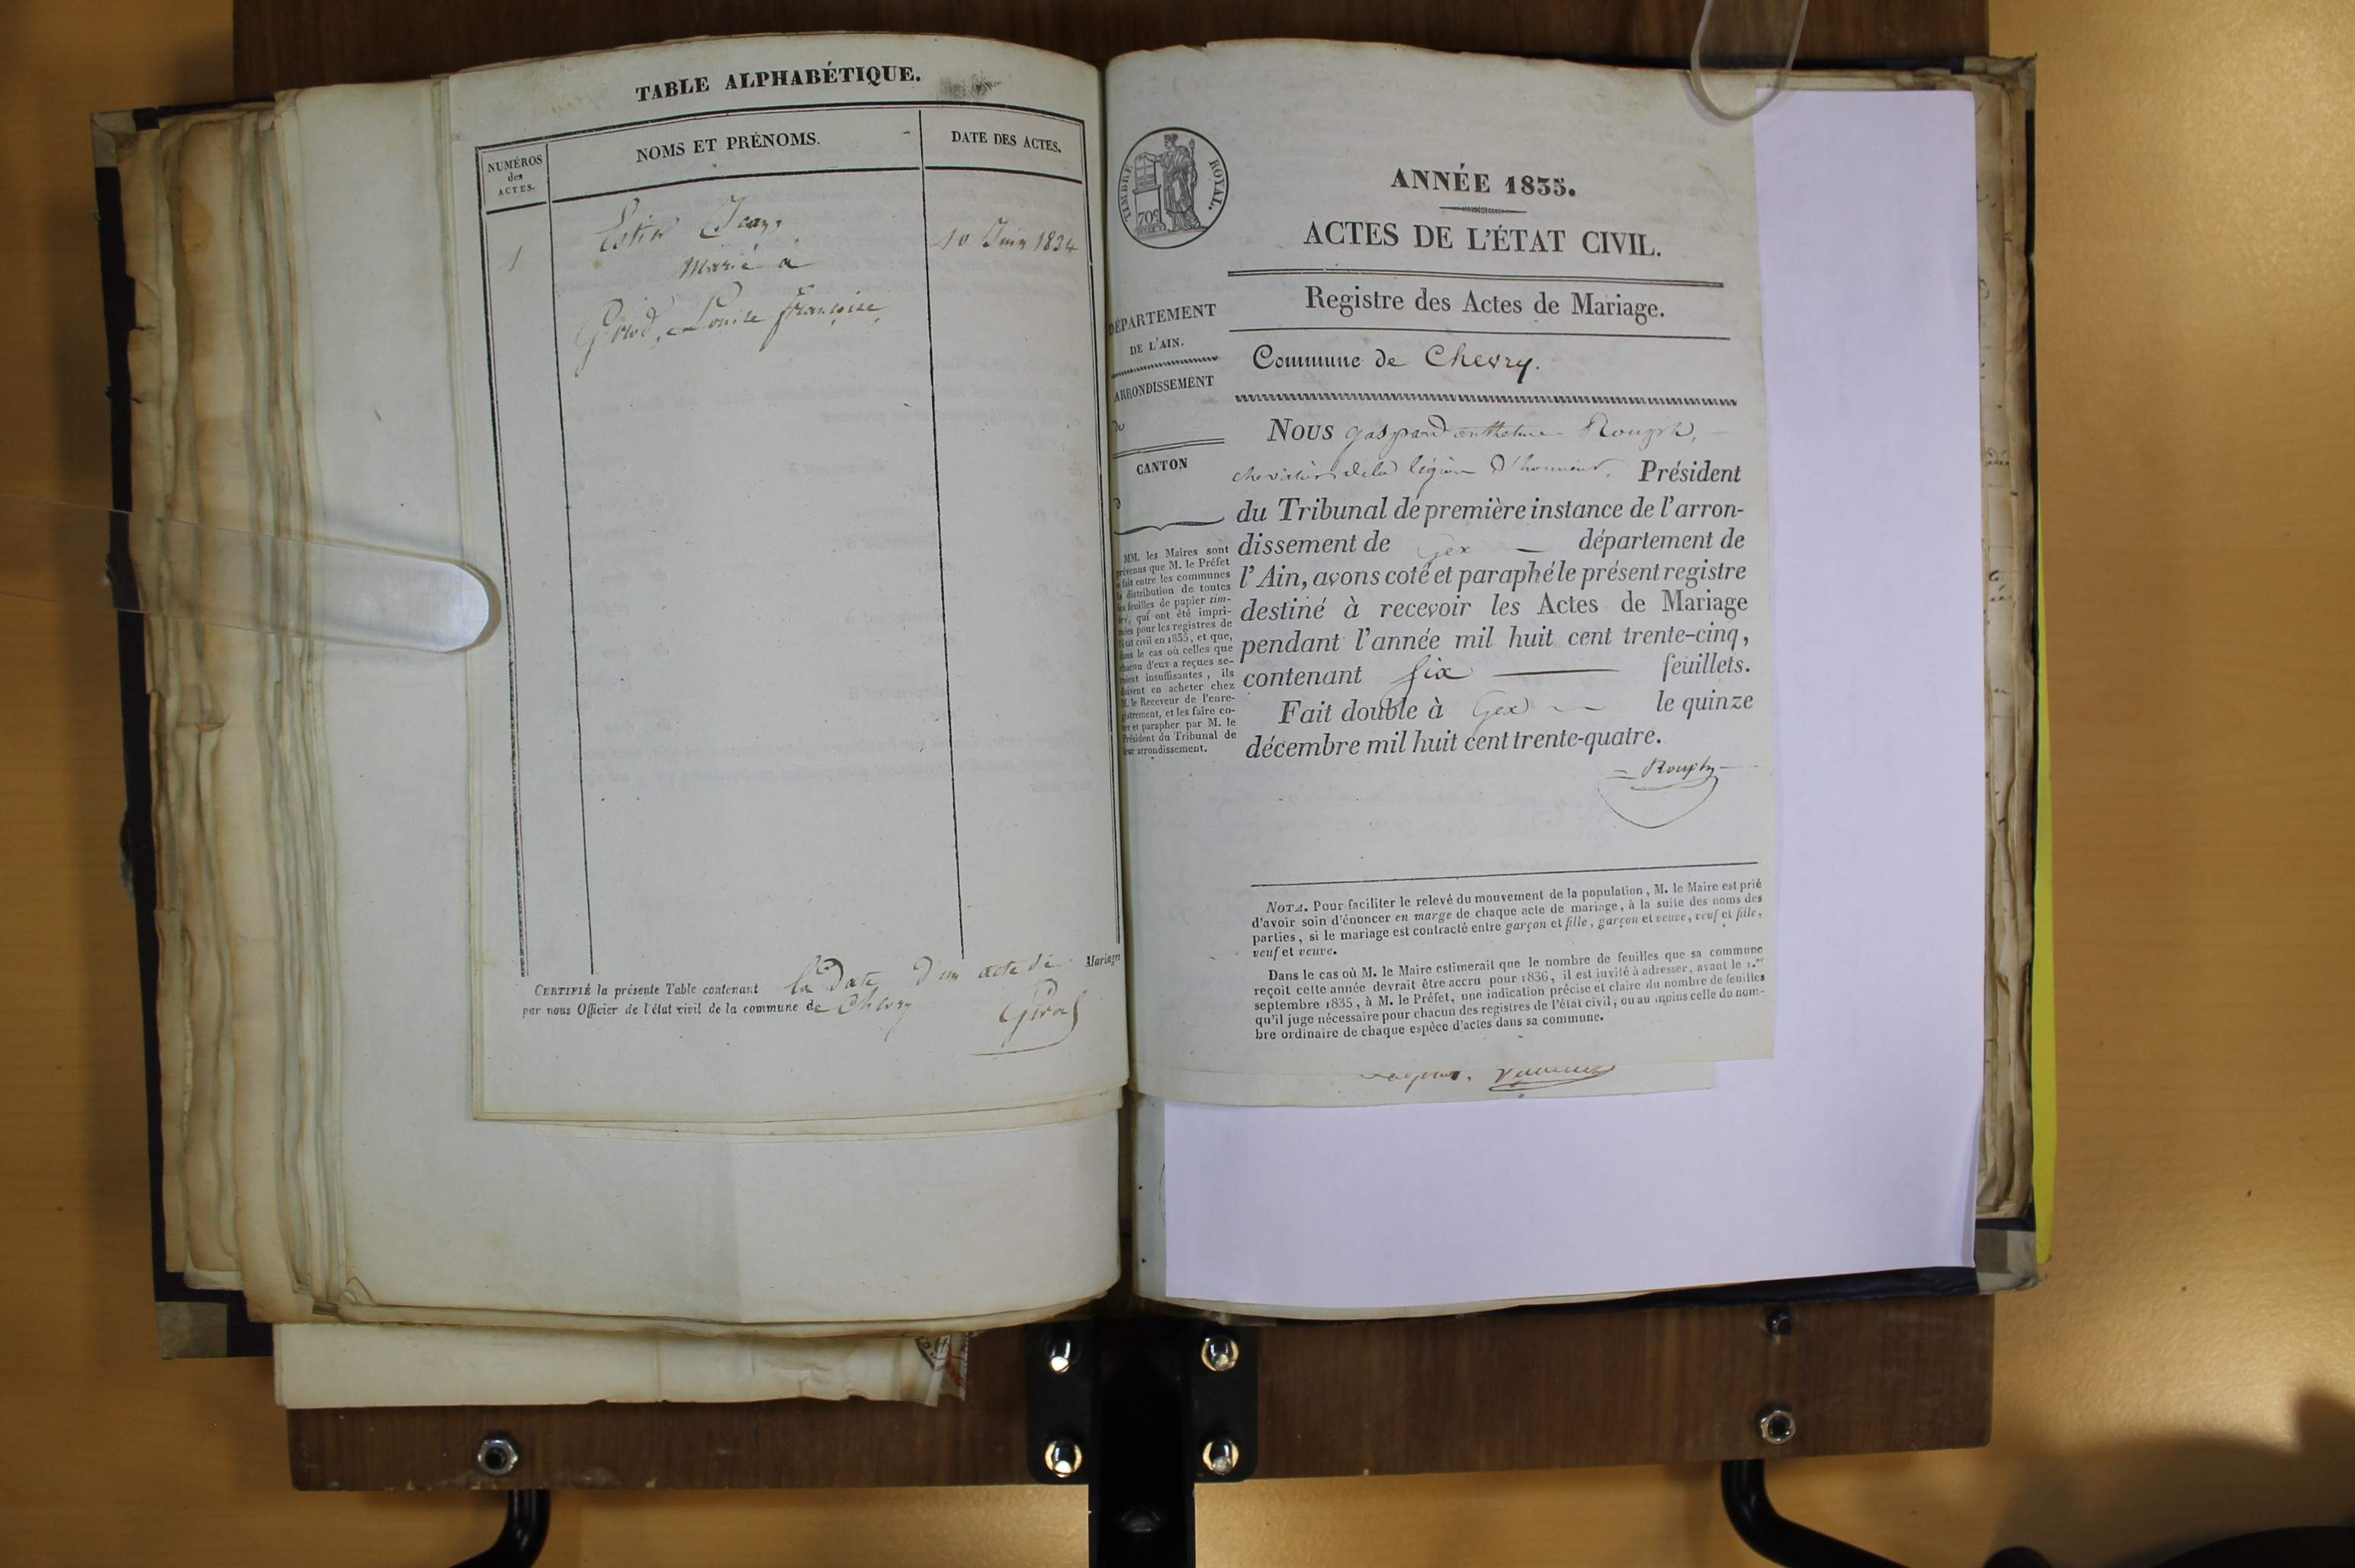 TABLE ALPHABÉTIQUE.
NUMÉROS
des
ACTES.
NOMS ET PRÉNOMS.
DATE DES ACTES.
1
Jean
10 Juin 1834
Marié à
Girod, Louise françoise
CERTIFIÉ la présente Table contenant la Date d'un acte de Mariages
par nous Officier de l'état civil de la commune de Chevry
Girod
TIMBRE ROYAL.
70c
ANNÉE 1835.
ACTES DE L'ÉTAT CIVIL.
Registre des Actes de Mariage.
DÉPARTEMENT
DE L'AIN.
ARRONDISSEMENT
CANTON
MM. les Maires sont
prévenus que M. le Préfet
a fait entre les communes
la distribution de toutes
les feuilles de papier tim-
bré, qui ont été impri-
mées pour les registres de
l'état civil en 1835, et que,
dans le cas où celles que
chacun d'eux a reçues se-
raient insuffisantes, ils
doivent en acheter chez
M. le Receveur de l'enre-
gistrement, et les faire co-
ter et parapher par M. le
Président du Tribunal de
leur arrondissement.
Commune de Chevry.
NOUS gaspard anthelme Rouph,
chevalier de la légion d'honneur, Président
du Tribunal de première instance de l'arron-
dissement de Gex — département de
l'Ain, avons coté et paraphé le présent registre
destiné à recevoir les Actes de Mariage
pendant l'année mil huit cent trente-cinq,
contenant six — feuillets.
Fait double à Gex — le quinze
décembre mil huit cent trente-quatre.
NOTA. Pour faciliter le relevé du mouvement de la population, M. le Maire est prié
d'avoir soin d'énoncer en marge de chaque acte de mariage, à la suite des noms des
parties, si le mariage est contracté entre garçon et fille, garçon et veuve, veuf et fille,
veuf et veuve.
Dans le cas où M. le Maire estimerait que le nombre de feuilles que sa commune
reçoit cette année devrait être accru pour 1836, il est invité à adresser, avant le 1.er
septembre 1835, à M. le Préfet, une indication précise et claire du nombre de feuilles
qu'il juge nécessaire pour chacun des registres de l'état civil, ou au moins celle du nom-
bre ordinaire de chaque espèce d'actes dans sa commune.